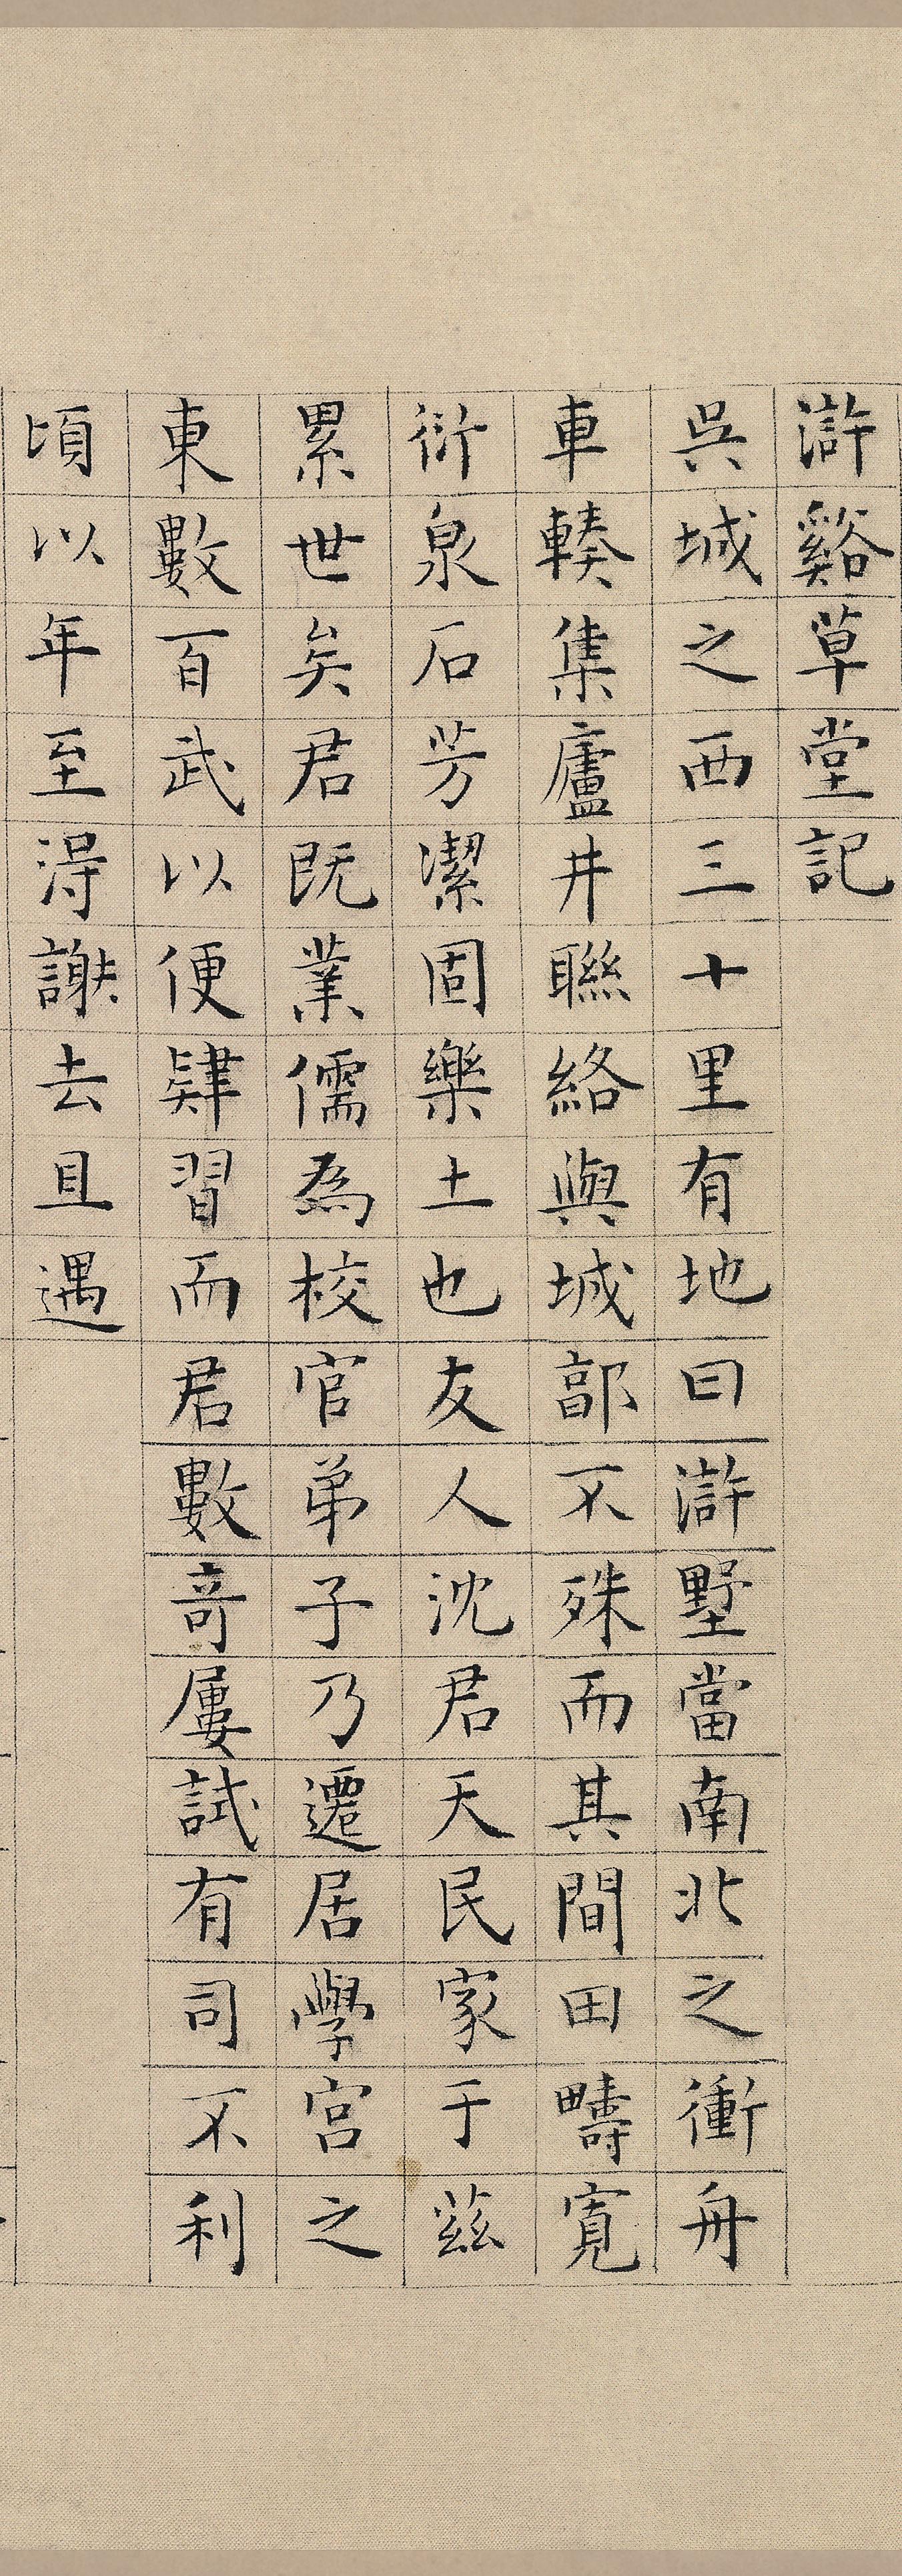 滸谿草堂記
吳城之西三十里有地曰滸墅當南北之衝舟
車輳集廬井聯絡與城郭不殊而其間田疇寬
衍泉石芳潔固樂土也友人沈君天民家于茲
累世矣君既業儒為校官弟子乃遷居學宮之
東數百武以便肄習而君數奇屢試有司不利
頃以年至得謝去且遇